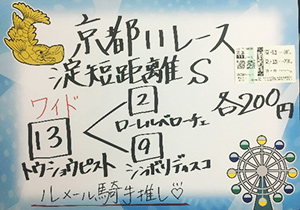 京都11レース
淀短距離S
ワイド
各200円
2
ローレルベローチェ
13
トウショウピスト
9
シンボリディスコ
ルメール騎手推し♡